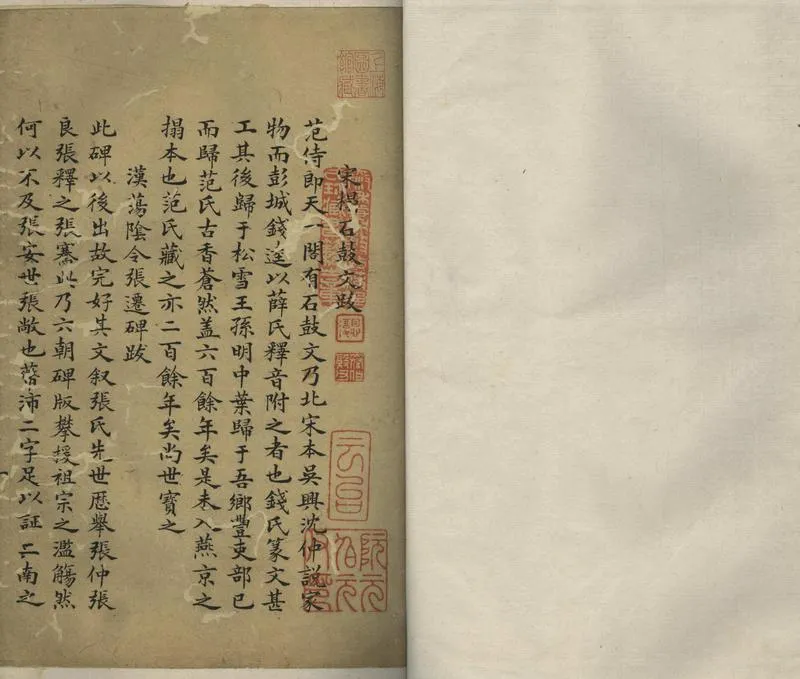 宋搨石鼓文跋
范侍郎天一閣有石鼓文乃北宋本吳興沈仲説家
物而彭城錢逵以薛氏釋音附之者也錢氏篆文甚
工其後歸于松雪王孫明中葉歸于吾鄉豐吏部已
而歸范氏古香蒼然盖六百餘年矣是未入燕京之
搨本也范氏藏之亦二百餘年矣尚世寳之
漢蕩陰令張遷碑跋
此碑以後出故完好其文叙張氏先世歷舉張仲張
良張釋之張騫此乃六朝碑版攀援祖宗之濫觴然
何以不及張安世張敞也蔽沛二字足以証二南之
上海圖書館藏
云昌
阮元伯元